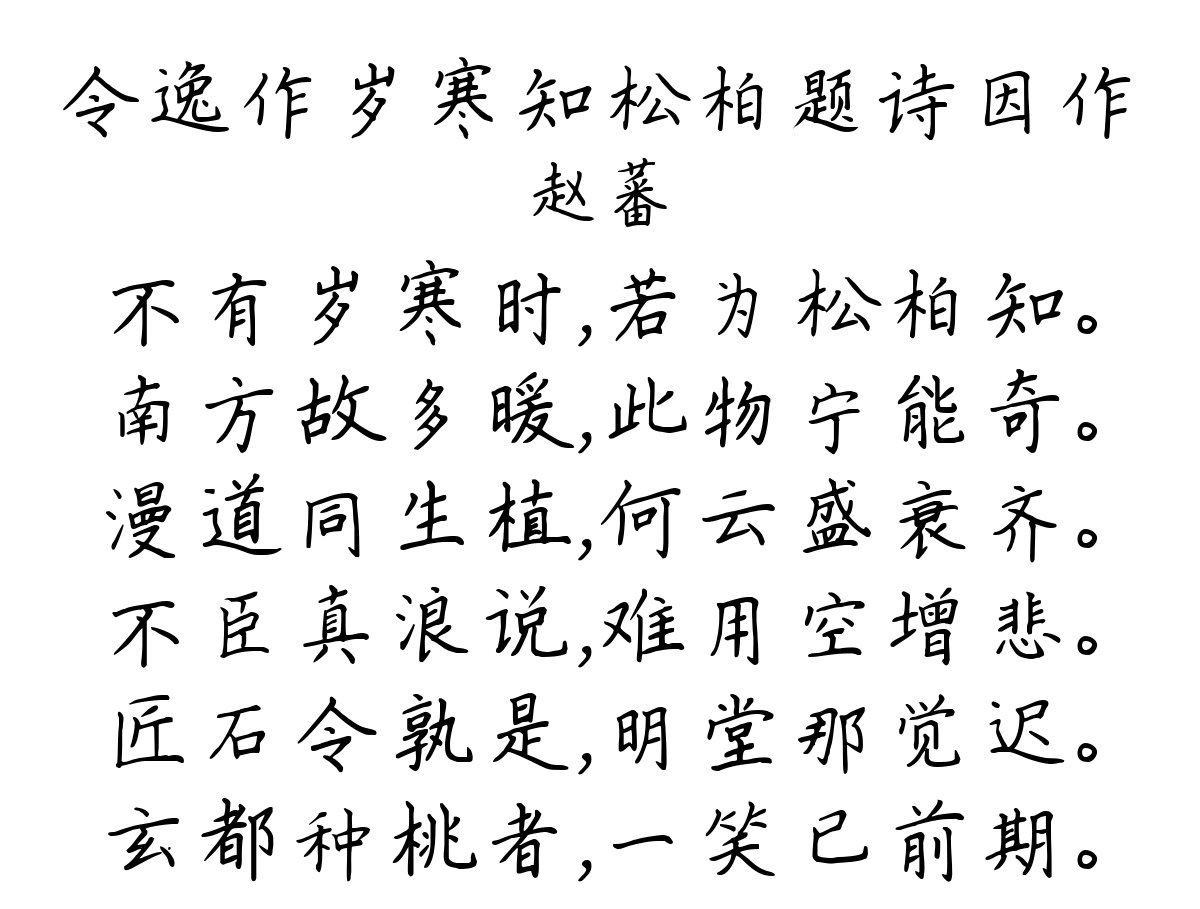 令逸作岁寒知松柏题诗因作
赵蕃
不有岁寒时,若为松柏知。
南方故多暖,此物宁能奇。
漫道同生植,何云盛衰齐。
不臣真浪说,难用空增悲。
匠石令孰是,明堂那觉迟。
玄都种桃者,一笑已前期。